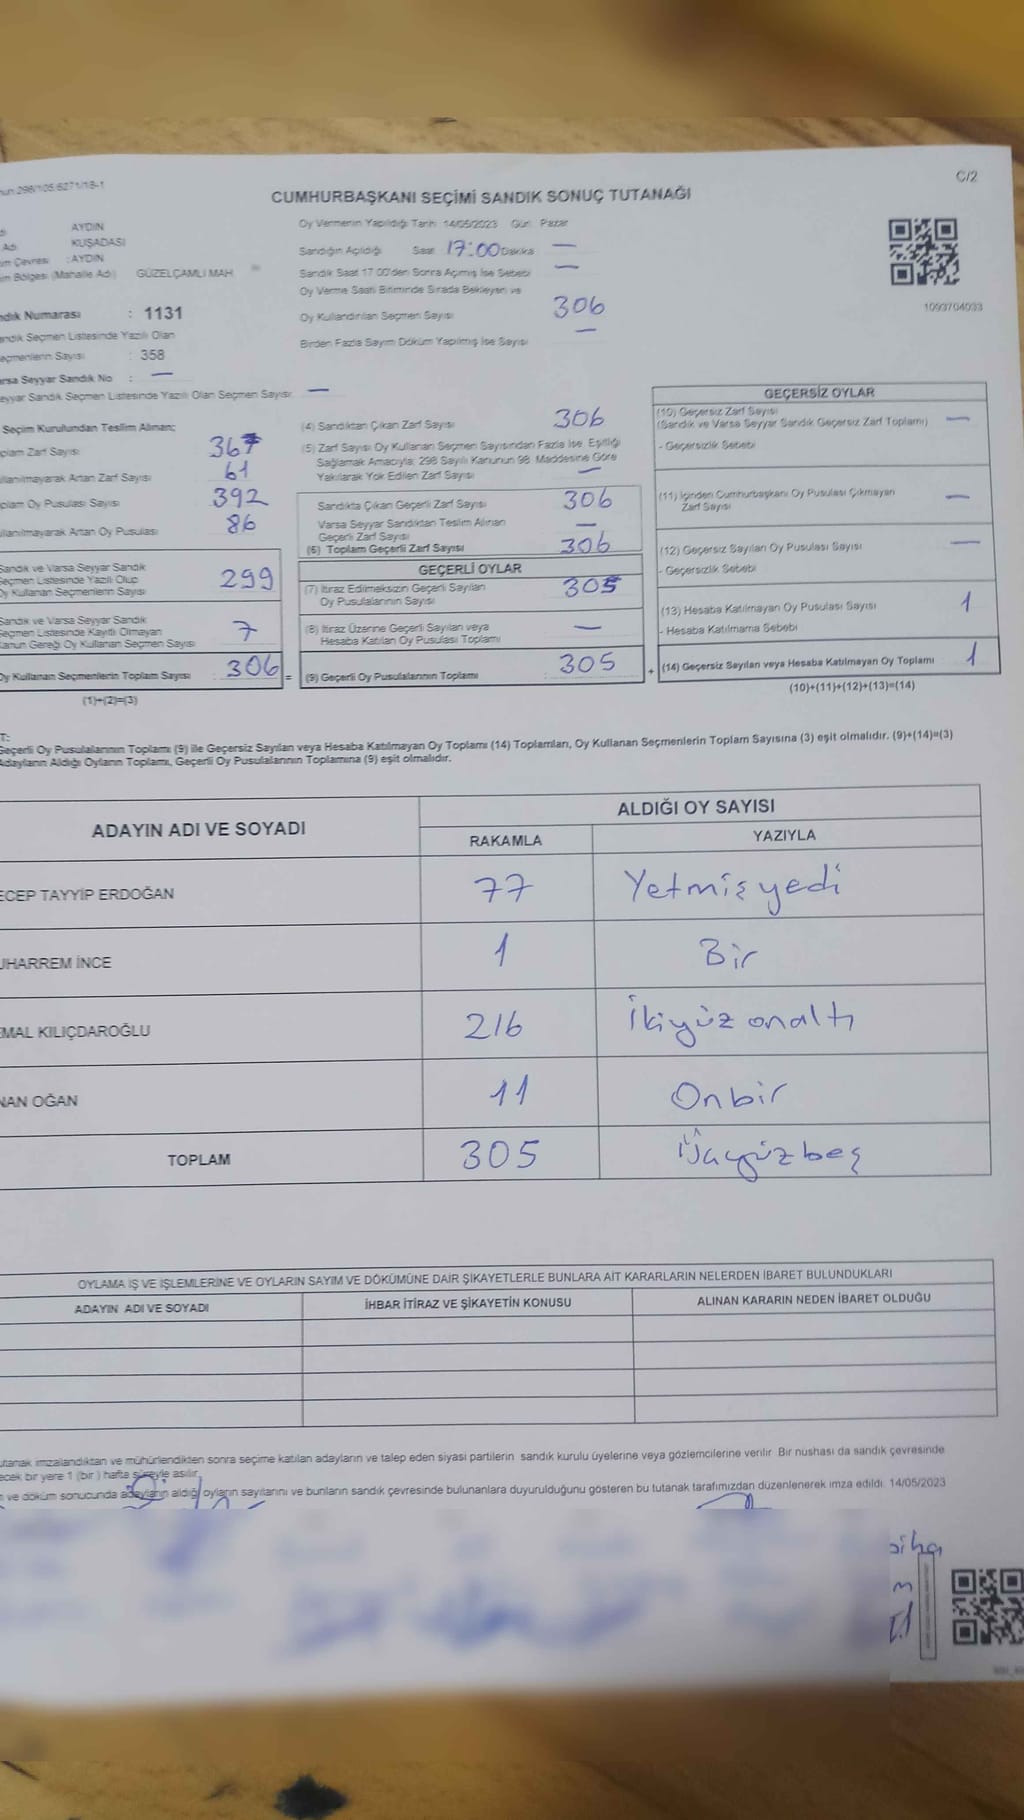 298/105.6271/18-1
C/2
CUMHURBAŞKANI SEÇİMİ SANDIK SONUÇ TUTANAĞI
AYDIN
KUŞADASI
: AYDIN
Bölgesi (Mahalle Adı) GÜZELÇAMLI MAH
Numarası : 1131
Seçmen Listesinde Yazılı Olan
Sayısı : 358
Seyyar Sandık No : —
Seyyar Sandık Seçmen Listesinde Yazılı Olan Seçmen Sayısı —
Oy Vermenin Yapıldığı Tarih 14/05/2023 Gün Pazar
Sandığın Açıldığı Saat 17:00 Dakika —
Sandık Saat 17 00'den Sonra Açılmış İse Sebebi —
Oy Verme Saati Bitiminde Sırada Bekleyen ve
Oy Kullandırılan Seçmen Sayısı 306
Birden Fazla Sayım Döküm Yapılmış İse Sayısı —
1093704033
Seçim Kurulundan Teslim Alınan;
Zarf Sayısı 367
Artan Zarf Sayısı 61
Oy Pusulası Sayısı 392
Artan Oy Pusulası 86
Sandık ve Varsa Seyyar Sandık
Seçmen Listesinde Yazılı Olup
Oy Kullanan Seçmenlerin Sayısı 299
Sandık ve Varsa Seyyar Sandık
Seçmen Listesinde Kayıtlı Olmayan
Kanun Gereği Oy Kullanan Seçmen Sayısı 7
Oy Kullanan Seçmenlerin Toplam Sayısı : 306 =
(1)+(2)=(3)
(4) Sandıktan Çıkan Zarf Sayısı 306
(5) Zarf Sayısı Oy Kullanan Seçmen Sayısından Fazla İse, Eşitliği
Sağlamak Amacıyla; 298 Sayılı Kanunun 98. Maddesine Göre
Yakılarak Yok Edilen Zarf Sayısı —
Sandıkta Çıkan Geçerli Zarf Sayısı 306
Varsa Seyyar Sandıktan Teslim Alınan
Geçerli Zarf Sayısı —
(6) Toplam Geçerli Zarf Sayısı 306
GEÇERLİ OYLAR
(7) İtiraz Edilmeksizin Geçerli Sayılan
Oy Pusulalarının Sayısı 305
(8) İtiraz Üzerine Geçerli Sayılan veya
Hesaba Katılan Oy Pusulası Toplamı —
(9) Geçerli Oy Pusulalarının Toplamı : 305 +
GEÇERSİZ OYLAR
(10) Geçersiz Zarf Sayısı
(Sandık ve Varsa Seyyar Sandık Geçersiz Zarf Toplamı) —
- Geçersizlik Sebebi
(11) İçinden Cumhurbaşkanı Oy Pusulası Çıkmayan
Zarf Sayısı —
(12) Geçersiz Sayılan Oy Pusulası Sayısı —
- Geçersizlik Sebebi
(13) Hesaba Katılmayan Oy Pusulası Sayısı 1
- Hesaba Katılmama Sebebi
(14) Geçersiz Sayılan veya Hesaba Katılmayan Oy Toplamı 1
(10)+(11)+(12)+(13)=(14)
Geçerli Oy Pusulalarının Toplamı (9) ile Geçersiz Sayılan veya Hesaba Katılmayan Oy Toplamı (14) Toplamları, Oy Kullanan Seçmenlerin Toplam Sayısına (3) eşit olmalıdır. (9)+(14)=(3)
Adayların Aldığı Oyların Toplamı, Geçerli Oy Pusulalarının Toplamına (9) eşit olmalıdır.
ADAYIN ADI VE SOYADI ALDIĞI OY SAYISI
RAKAMLA YAZIYLA
ECEP TAYYİP ERDOĞAN 77 Yetmiş yedi
UHARREM İNCE 1 Bir
EMAL KILIÇDAROĞLU 216 İkiyüz onaltı
NAN OĞAN 11 Onbir
TOPLAM 305 Üçyüzbeş
OYLAMA İŞ VE İŞLEMLERİNE VE OYLARIN SAYIM VE DÖKÜMÜNE DAİR ŞİKAYETLERLE BUNLARA AİT KARARLARIN NELERDEN İBARET BULUNDUKLARI
ADAYIN ADI VE SOYADI İHBAR İTİRAZ VE ŞİKAYETİN KONUSU ALINAN KARARIN NEDEN İBARET OLDUĞU
utanak imzalandıktan ve mühürlendikten sonra seçime katılan adayların ve talep eden siyasi partilerin sandık kurulu üyelerine veya gözlemcilerine verilir Bir nüshası da sandık çevresinde
ecek bir yere 1 (bir ) hafta süreyle asılır
ve döküm sonucunda adayların aldığı oyların sayılarını ve bunların sandık çevresinde bulunanlara duyurulduğunu gösteren bu tutanak tarafımızdan düzenlenerek imza edildi. 14/05/2023